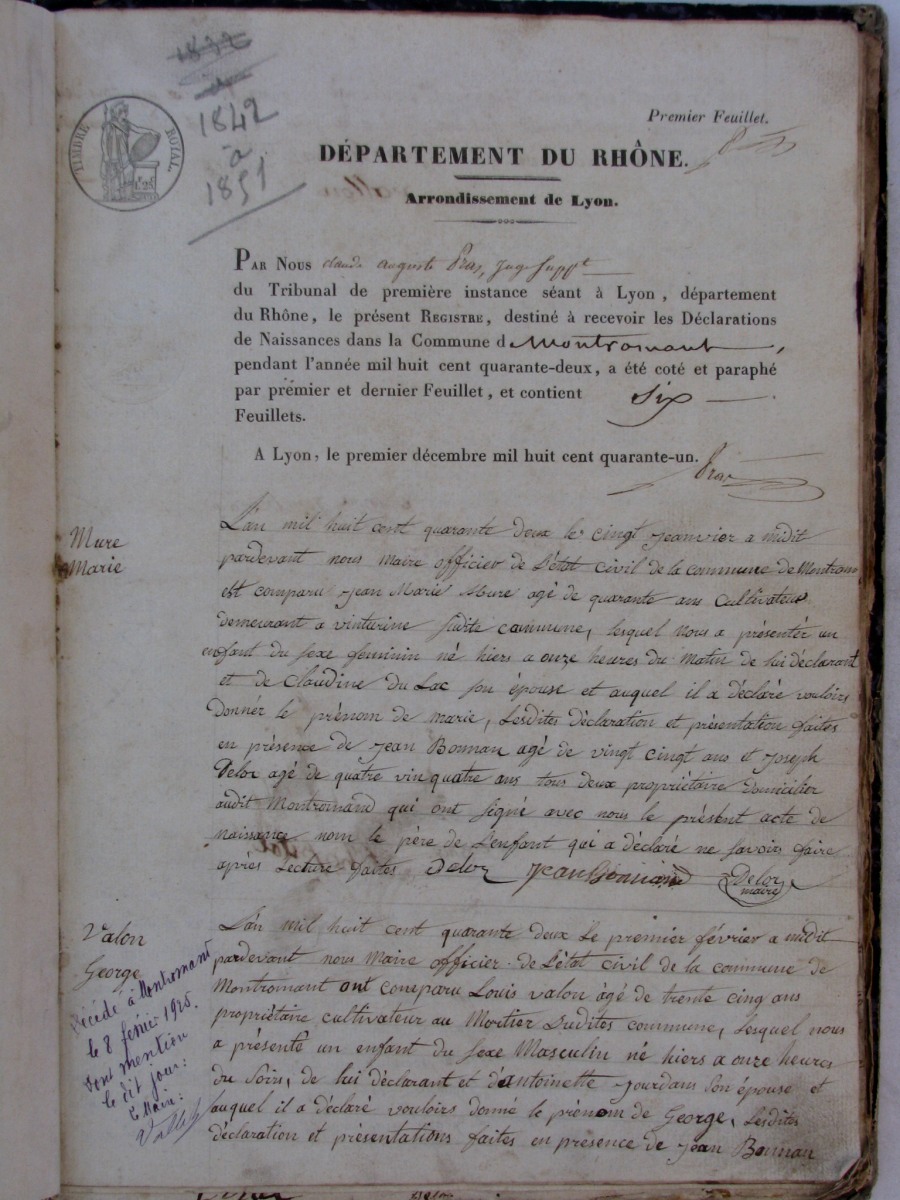 1842
à
1851
TIMBRE ROYAL
Premier Feuillet.
DÉPARTEMENT DU RHÔNE.
Arrondissement de Lyon.
PAR NOUS claude auguste Pras, Juge Suppt
du Tribunal de première instance séant à Lyon, département
du Rhône, le présent REGISTRE, destiné à recevoir les Déclarations
de Naissances dans la Commune d Montromant,
pendant l'année mil huit cent quarante-deux, a été coté et paraphé
par premier et dernier Feuillet, et contient Six
Feuillets.
A Lyon, le premier décembre mil huit cent quarante-un.
Pras
Mure
Marie
L'an mil huit cent quarante deux le cingt jeanvier a midit
pardevant nous maire officier de L'état Civil de la commune de Montroman
est comparu Jean Marie Mure agé de quarante ans Cultivateur
demeurant a vinturine sudite commune, lesquel nous a présentér un
enfant du sexe feminin né hiers a onze heures du Matin de lui déclarant
et de Claudine du Lac son épouse et auquel il a déclaré vouloirs
Donnér le prénom de marie, Lesdites déclaration et présentation faites
en présence de Jean Bonnan agé de vingt cingt ans et Joseph
Delor agé de quatre vin quatre ans tous deux propriétaire domicilier
audit Montromand qui ont signé avec nous le présent acte de
naissance nom le père de L'enfant qui a déclaré ne savoirs faire
après Lecture faites Delor Jean Bonnand Delor
maire
Valon
George
Décédé à Montromant
le 8 février 1925.
Dont mention
le dit jour:
Le Maire:
L'an mil huit cent quarante deux Le premier février a midit
pardevant nous Maire officier de L'état civil de la commune de
Montromant ont comparu Louis valon àgé de trente cinq ans
propriétaire cultivateur au Moitier Dudites commune, Lesquel nous
a présenté un enfant du sexe Masculin né hiers a onze heures
du Soirs, de lui déclarant et d'antoinette Jourdans Son épouse et
auquel il a déclaré vouloirs donné le prénom de George, Lesdites
déclaration et présentations faites en présence de Jean Bonnan